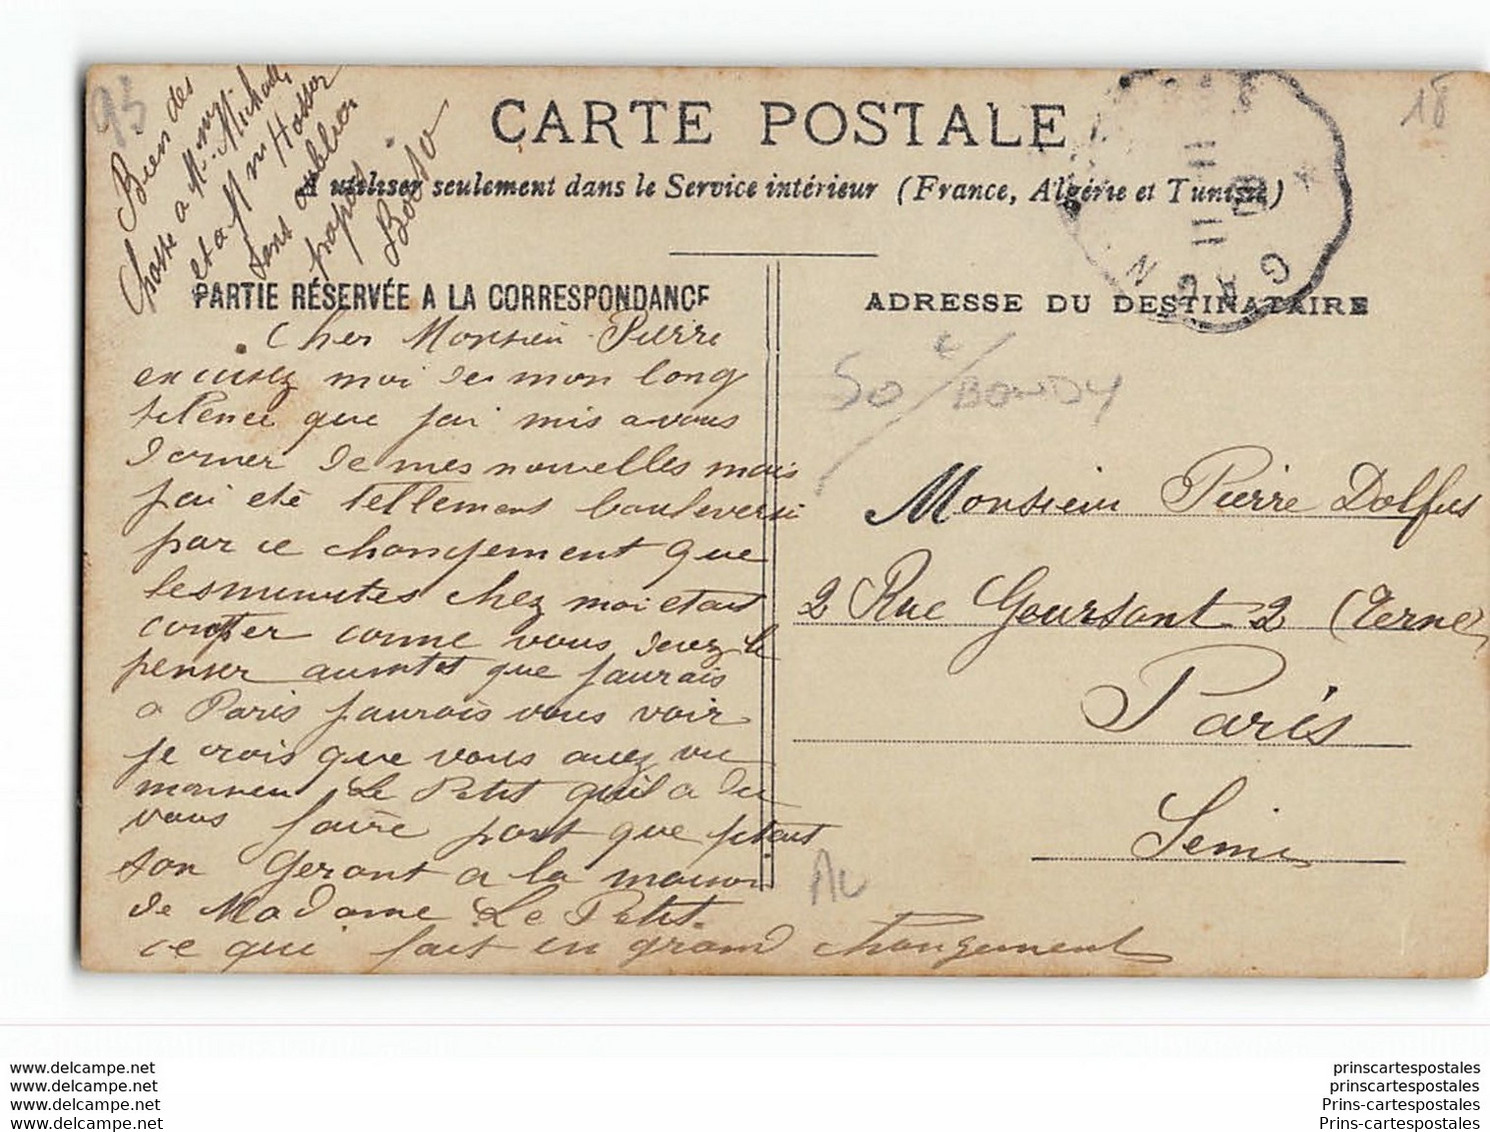 93
18
Bien des
chose a Mr. Mme. Michaell
et a M m Hosser
sans oublier
papa
CARTE POSTALE
A utiliser seulement dans le Service intérieur (France, Algérie et Tunisie)
PARTIE RÉSERVÉE A LA CORRESPONDANCE
ADRESSE DU DESTINATAIRE
Cher Monsieu Pierre
excusez moi de mon long
silence que jai mis a vous
donner de mes nouvelles mais
jai eté tellement bouleversé
par ce changement que
les minutes chez moi etait
conter comme vous devez le
penser ausitot que jaurais
a Paris jaurais vous voir
je crois que vous avez vu
monsieu Le Petit quil a du
vous faire part que jetait
son Gerant a la maison
de Madame Le Petit
ce qui fait un grand changement
50 c/ BONDY
Monsieur Pierre Dolfus
2 Rue Goursant 2 (Terne)
Paris
Seine
AL
www.delcampe.net
www.delcampe.net
www.delcampe.net
www.delcampe.net
prinscartespostales
prinscartespostales
Prins-cartespostales
Prins-cartespostales